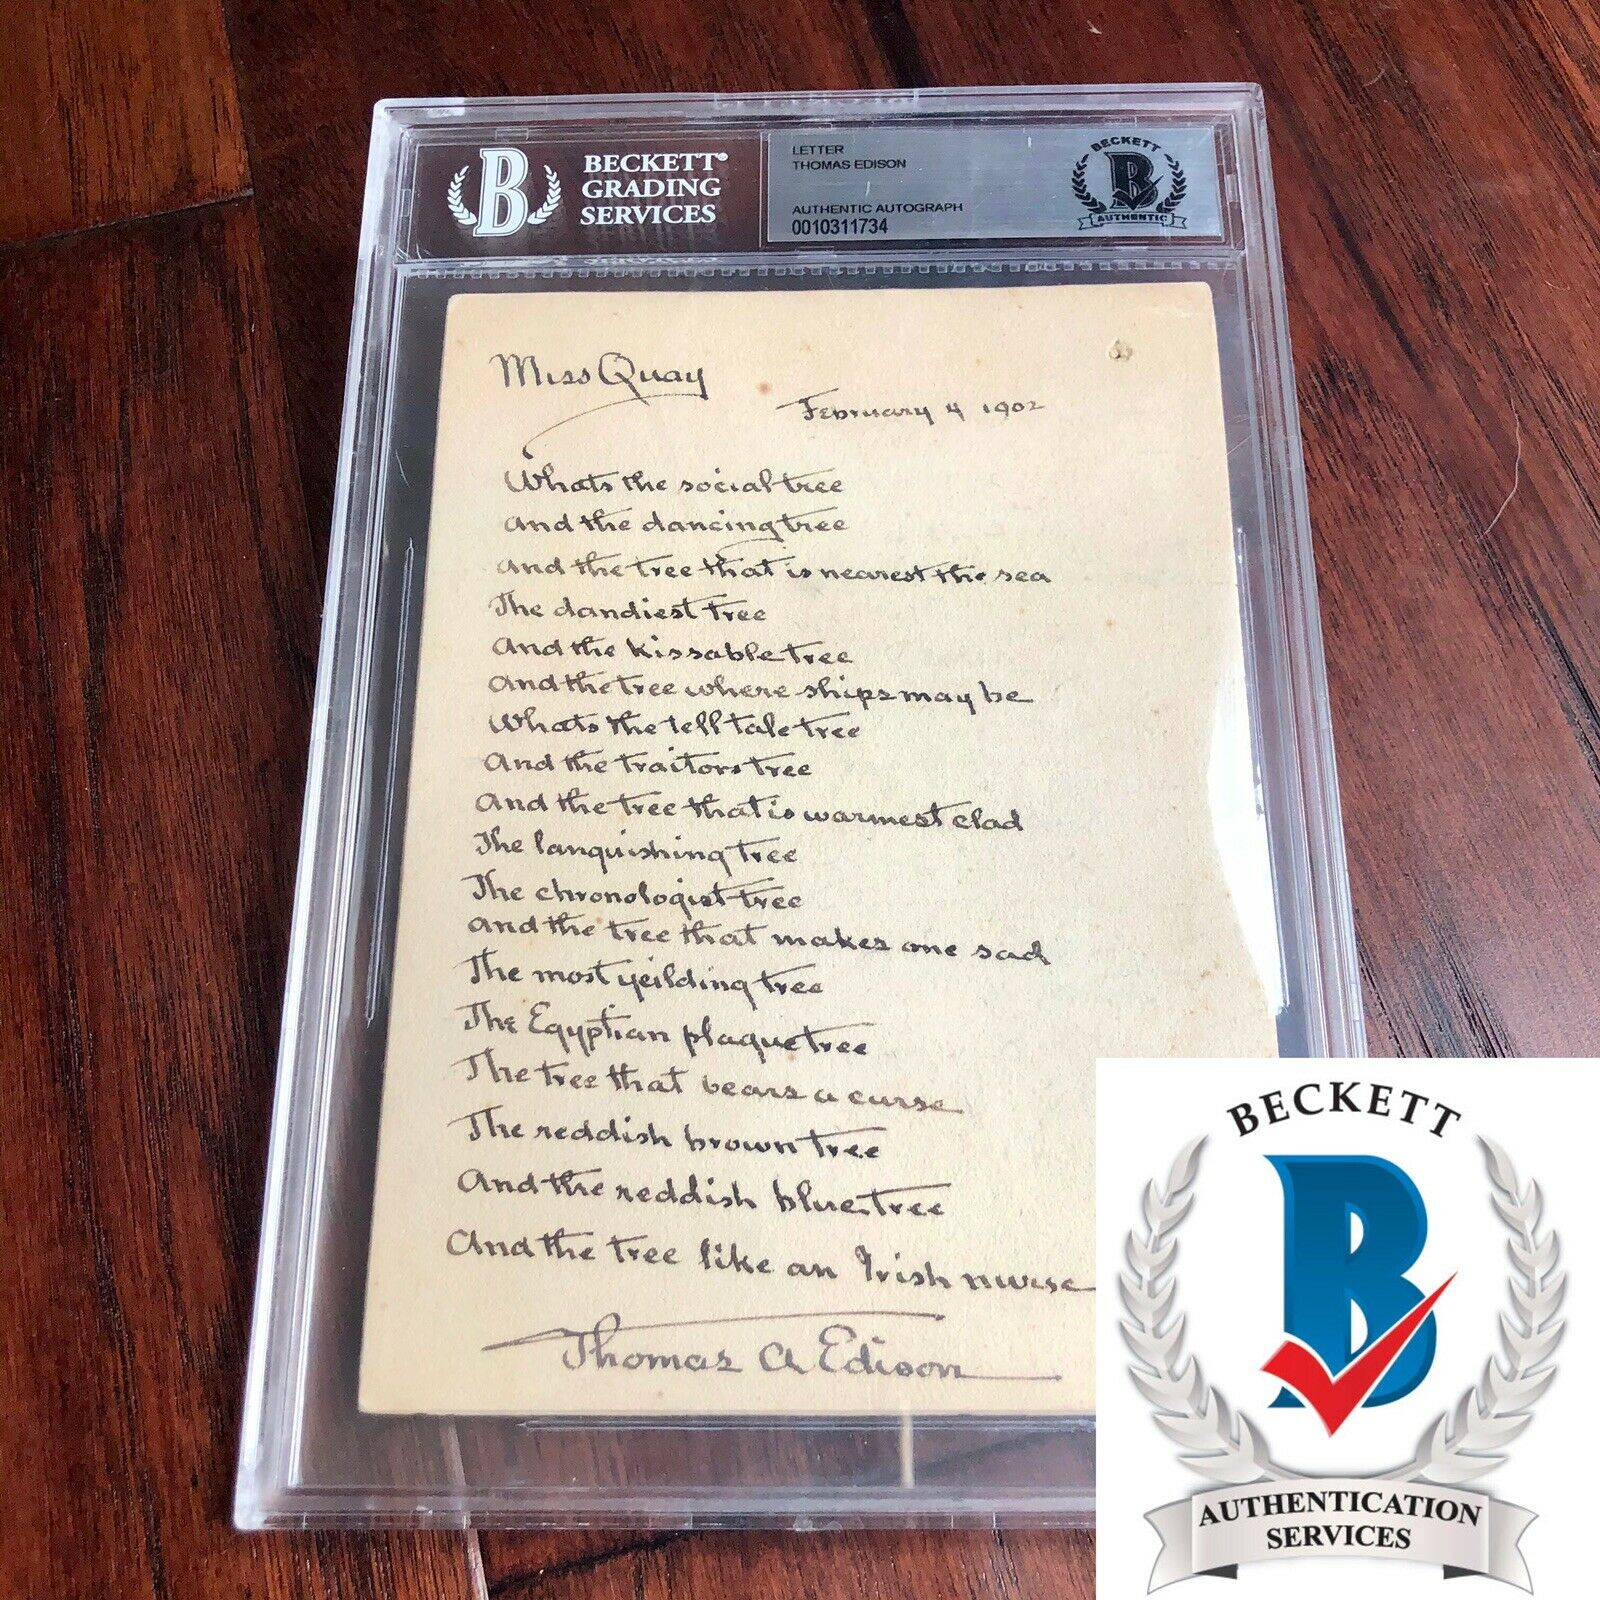 BECKETT®
GRADING
SERVICES
LETTER
THOMAS EDISON
AUTHENTIC AUTOGRAPH
0010311734
BECKETT
B
AUTHENTIC
B
Miss Quay
February 4 1902
Whats the social tree
And the dancing tree
And the tree that is nearest the sea
The dandiest tree
And the kissable tree
And the tree where ships may be
Whats the tell tale tree
And the traitors tree
And the tree that is warmest clad
The languishing tree
The chronologist tree
And the tree that makes one sad
The most yeilding tree
The Egyptian plaque tree
The tree that bears a curse
The reddish brown tree
And the reddish blue tree
And the tree like an Irish nurse
Thomas A Edison
BECKETT
B
AUTHENTICATION
SERVICES